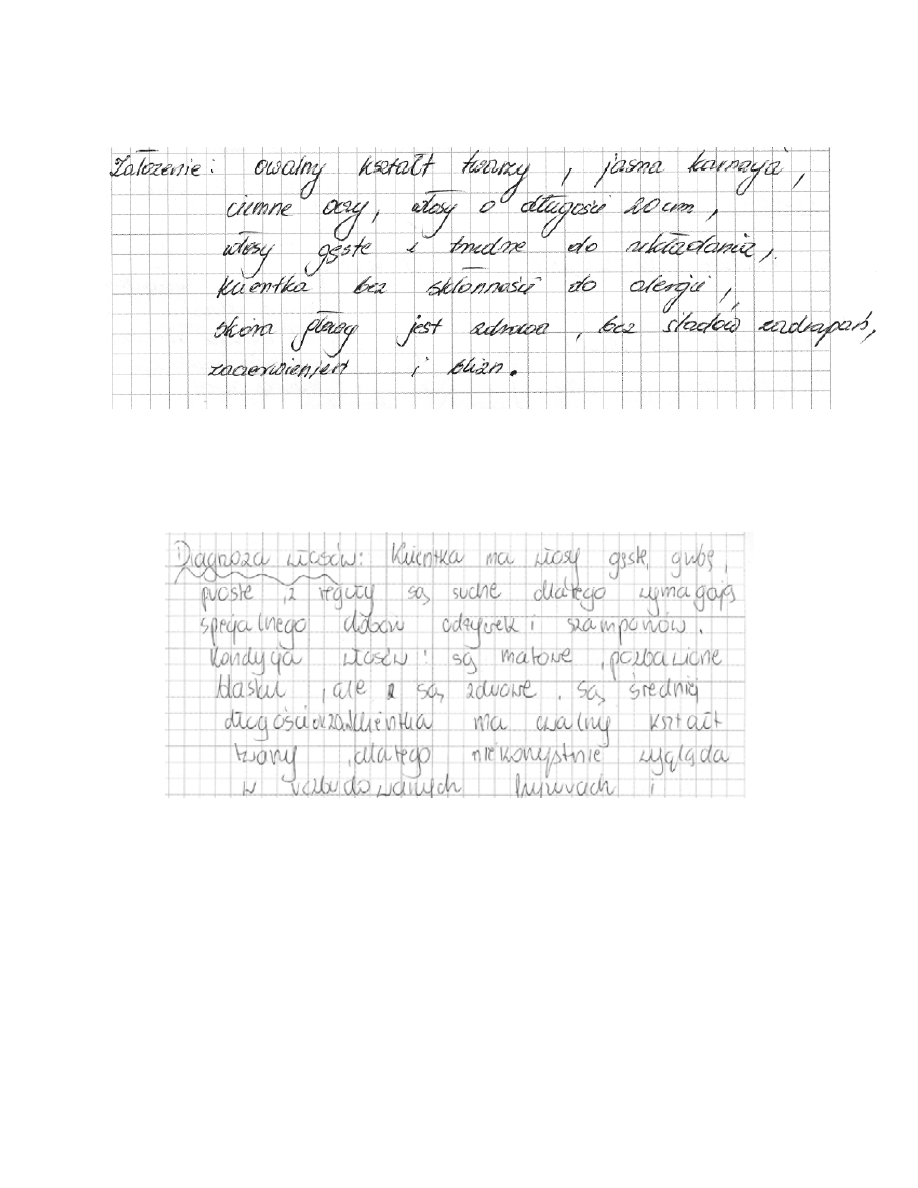 Założenie: owalny kształt twarzy, jasna karnacja,
ciemne oczy, włosy o długości 20 cm,
włosy gęste i trudne do układania,
klientka bez skłonności do alergii,
skóra głowy jest zdrowa, bez śladów zadrapań,
zaczerwienień i blizn.
Diagnoza włosów: Klientka ma włosy gęste, grube,
proste, z reguły są suche dlatego wymagają
specjalnego doboru odżywek i szamponów.
Kondycja włosów: są matowe, pozbawione
blasku, ale są zdrowe, są średniej
długości oraz klientka ma owalny kształt
twarzy, dlatego niekorzystnie wygląda
w rozbudowanych fryzurach i